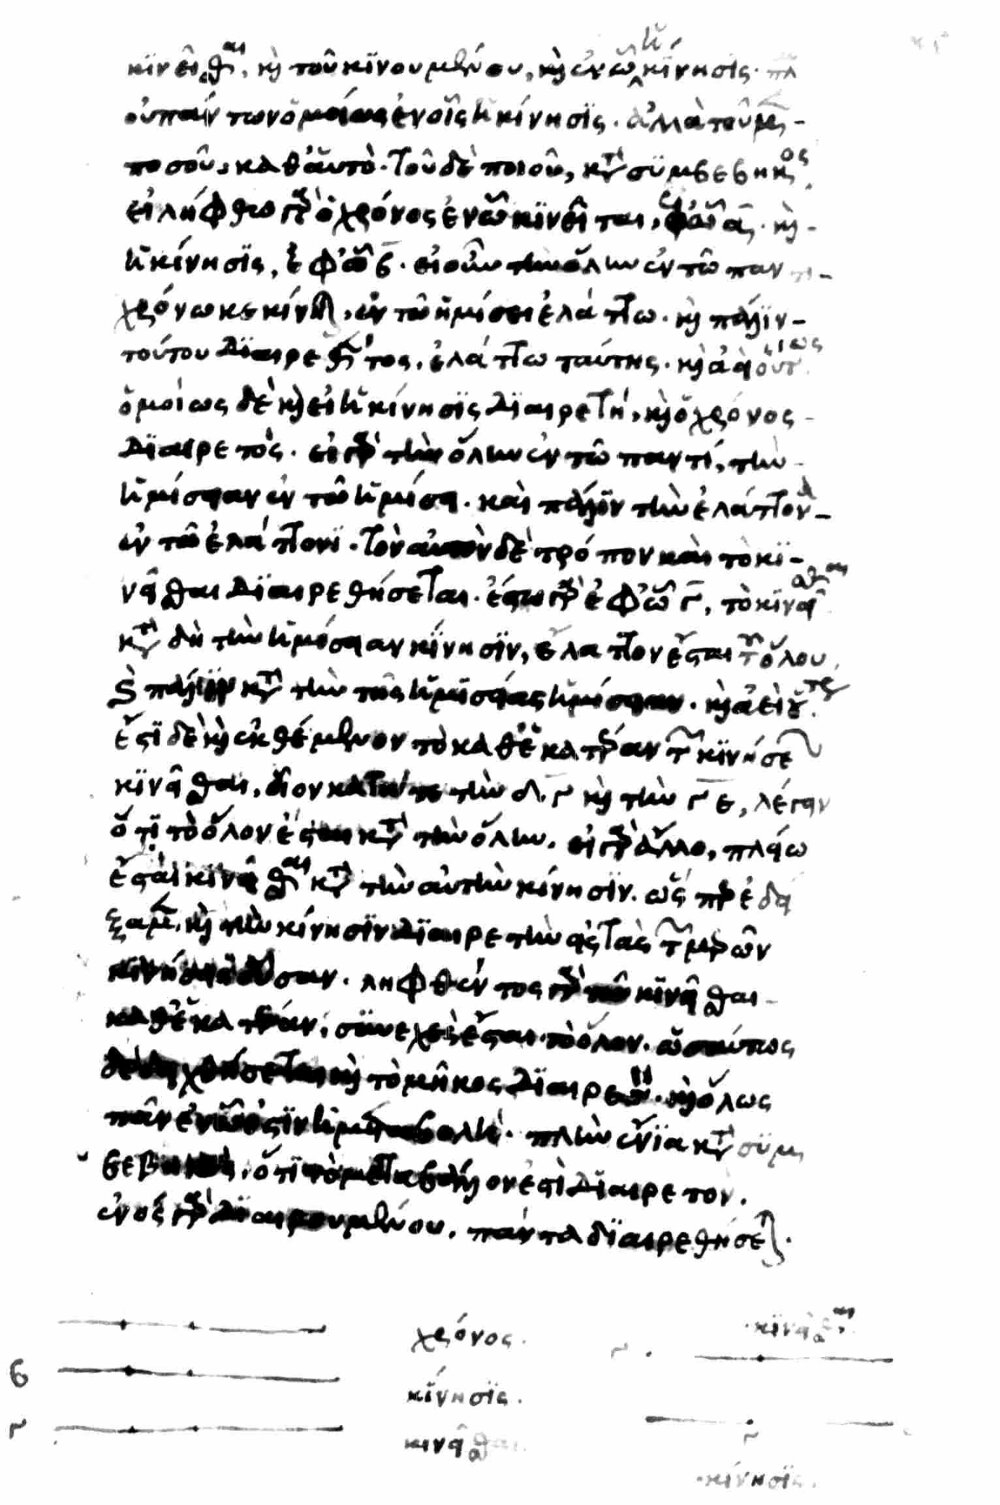 κινεῖσθαι, καὶ τοῦ κινουμένου, καὶ ἐν ᾧ ἡ κίνησις· πλὴν
οὐ πάντων ὁμοίως ἐν οἷς ἡ κίνησις· ἀλλὰ τοῦ μὲν
ποσοῦ, καθ' αὑτό· τοῦ δὲ ποιοῦ, κατὰ συμβεβηκός
εἰλήφθω γὰρ ὁ χρόνος ἐν ᾧ κινεῖται, ἐφ' ᾧ α· καὶ
ἡ κίνησις, ἐφ' ᾧ β· εἰ οὖν τὴν ὅλην ἐν τῷ παντὶ
χρόνω κεκίνηται, ἐν τῷ ἡμίσει ἐλάττω· καὶ πάλιν
τούτου διαιρεθέντος, ἐλάττω ταύτης· καὶ ἀεὶ οὕτως
ὁμοίως δὲ καὶ εἰ ἡ κίνησις διαιρετή, καὶ ὁ χρόνος
διαιρετός· εἰ γὰρ τὴν ὅλην ἐν τῷ παντί, τὴν
ἡμίσειαν ἐν τῷ ἡμίσει· καὶ πάλιν τὴν ἐλάττονα
ἐν τῷ ἐλάττονι· τὸν αὐτὸν δὲ τρόπον καὶ τὸ κι
νεῖσθαι διαιρεθήσεται· ἔστω γὰρ ἐφ' ᾧ γ, τὸ κινεῖσθαι
κατὰ δὴ τὴν ἡμίσειαν κίνησιν, ἔλαττον ἔσται τοῦ ὅλου,
καὶ πάλιν κατὰ τὴν τῆς ἡμισείας ἡμίσειαν· καὶ ἀεὶ οὕτως
ἔστι δὲ καὶ ἐκθέμενον τὸ καθ' ἑκατέραν τῶν κινήσεων
κινεῖσθαι, οἷον κατά τε τὴν δγ καὶ τὴν γε, λέγειν
ὅτι τὸ ὅλον ἔσται κατὰ τὴν ὅλην· εἰ γὰρ ἄλλο, πλείω
ἔσται κινεῖσθαι κατὰ τὴν αὐτὴν κίνησιν· ὥσπερ ἐδεί
ξαμεν καὶ τὴν κίνησιν διαιρετὴν εἰς τὰς τῶν μερῶν
κινήσεις οὖσαν· ληφθέντος γὰρ τοῦ κινεῖσθαι
καθ' ἑκατέραν, συνεχὲς ἔσται τὸ ὅλον· ὡσαύτως
δὲ δειχθήσεται καὶ τὸ μῆκος διαιρετόν· καὶ ὅλως
πᾶν ἐν ᾧ ἐστὶν ἡ μεταβολή· πλὴν ἔνια κατὰ συμ
βεβηκός, ὅτι τὸ μεταβάλλον ἐστὶ διαιρετόν.
ἑνὸς γὰρ διαιρουμένου, πάντα διαιρεθήσεται.
χρόνος.
κινεῖσθαι
β
γ
κίνησις.
γ
κινεῖσθαι
γ
κίνησις.